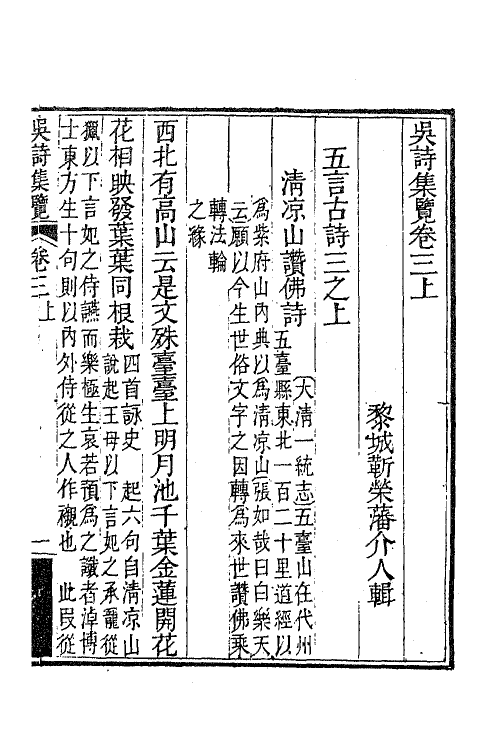 吳詩集覽卷三上
黎城靳榮藩介人輯
五言古詩三之上
清凉山讚佛詩
大清一統志五臺山在代州
五臺縣東北一百二十里道經以
爲紫府山內典以爲清凉山張如哉曰白樂天
云願以今生世俗文字之因轉爲來世讚佛乘
轉法輪
之緣
西北有高山云是文殊臺臺上明月池千葉金蓮開花
花相映發葉葉同根栽
四首詠史 起六句自清凉山
說起王母以下言妃之承寵從
獵以下言妃之侍讌而樂極生哀若預爲之讖者淖博
士東方生十句則以內外侍從之人作襯也 此叚從
吳詩集覽 卷三上 一